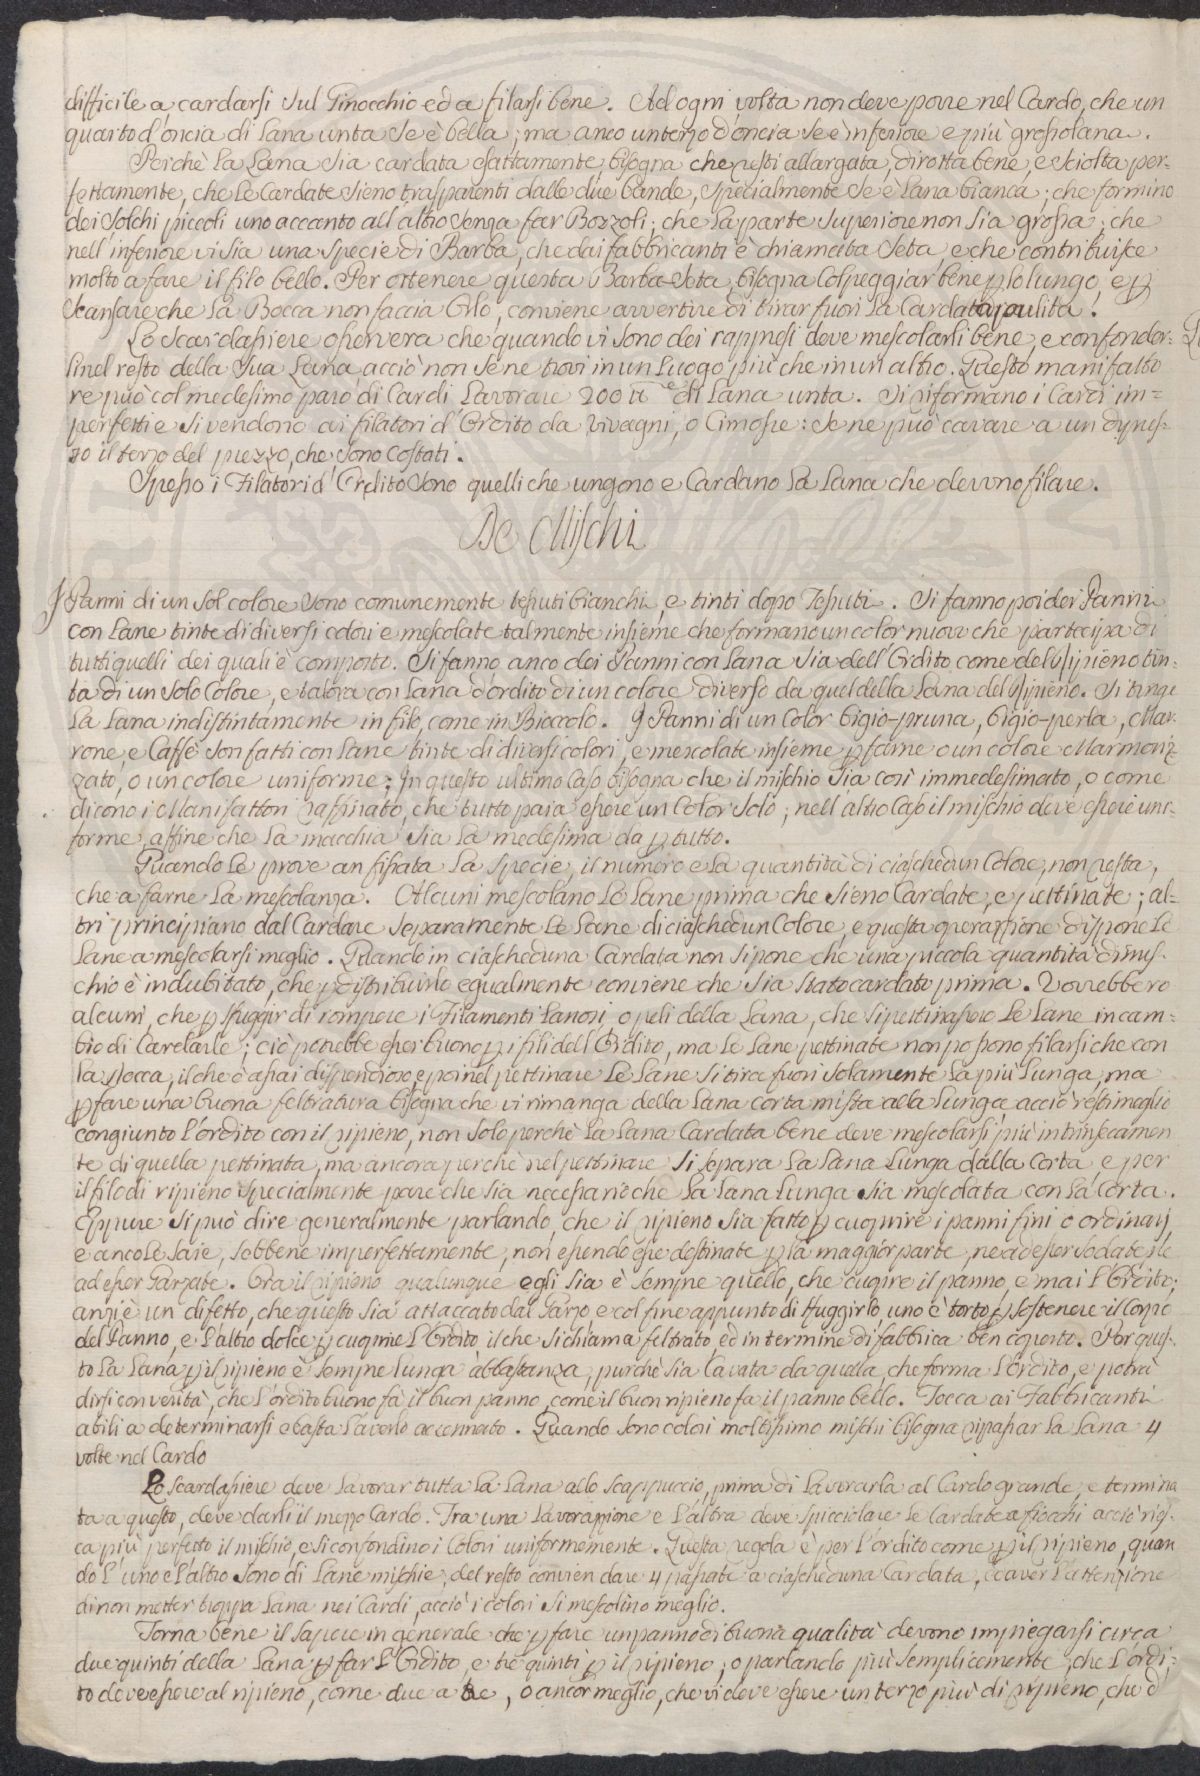 difficile a cardarsi sul Ginocchio ed a filarsi bene. Ad ogni volta non deve porre nel Cardo, che un
quarto d'oncia di Lana unta se è bella; ma anco un terzo d'oncia se è inferiore e più grossolana.
Perchè la Lana sia cardata esattamente, bisogna che resti allargata, dirotta bene, e sciolta per-
fettamente, che le Cardate sieno trasparenti dalle due bande, specialmente se è Lana bianca; che formino
dei solchi piccoli uno accanto all'altro senza far Bozzoli; che la parte superiore non sia grossa; che
nell'inferiore vi sia una specie di Barba, che dai fabbricanti è chiamata Seta, e che contribuisce
molto a fare il filo bello. Per ottenere questa Barba-Seta, bisogna colpeggiar bene p lo lungo, e p
scansare che la Bocca non faccia Orlo, conviene avvertire di tirar fuori la Cardata pulita.
Lo Scardassiere osserverà che quando vi sono dei rappresi deve mescolarli bene, e confonder-
li nel resto della sua Lana, acciò non se ne trovi in un Luogo più che in un altro. Questo manifatto
re può col medesimo paro di Cardi Lavorare 200 ℔ di Lana unta. Si riformano i Cardi im=
perfetti e si vendono ai filatori d'Ordito da vivagni, o Cimosse: Se ne può cavare a un dipres-
so il terzo del prezzo, che sono costati.
Spesso i Filatori d'Ordito sono quelli che ungono e Cardano la Lana che devono filare.
De Mischi
I Panni di un sol colore sono comunemente tessuti bianchi, e tinti dopo Tessuti. Si fanno poi dei Panni
con Lane tinte di diversi colori e mescolate talmente insieme che formano un color nuovo che partecipa di
tutti quelli dei quali è composto. Si fanno anco dei Panni con Lana sia dell'Ordito come del ripieno tin-
ta di un solo Colore, e talora con Lana d'ordito di un colore diverso da quel della Lana del ripieno. Si tinge
la Lana indistintamente in filo, come in Bioccolo. I Panni di un Color bigio-pruna, bigio-perla, Mar-
rone, e Caffè son fatti con Lane tinte di diversi colori, e mescolate insieme p farne o un colore Marmoriz-
zato, o un colore uniforme: In questo ultimo Caso bisogna che il mischio sia così immedesimato, o come
dicono i Manifattori raffinato, che tutto paia essere un Color solo; nell'altro Caso il mischio deve essere uni-
forme, affine che la macchia sia la medesima da p tutto.
Quando le prove an fissata la specie, il numero e la quantità di ciaschedun Colore, non resta,
che a farne la mescolanza. Alcuni mescolano le Lane prima che sieno Cardate, e pettinate; al-
tri principiano dal Cardare separamente le Lane di ciaschedun Colore, e questa operazzione dispone le
Lane a mescolarsi meglio. Quando in ciascheduna Cardata non si pone che una piccola quantità di mis-
chio è indubitato, che p distribuirlo egualmente conviene che sia stato cardato prima. Vorrebbero
alcuni, che p sfuggir di rompere i Filamenti Lanosi, o peli della Lana, che si pettinassero le Lane in cam=
bio di Cardarle; ciò potrebbe esser buono p i fili dell'Ordito, ma le Lane pettinate non possono filarsi che con
la Rocca, il che è assai dispendioso, e poi nel pettinare le Lane si tira fuori solamente la più Lunga, ma
p fare una buona feltratura bisogna che vi rimanga della Lana corta mista alla Lunga acciò resti meglio
congiunto l'ordito con il ripieno, non solo perchè la Lana Cardata bene deve mescolarsi più intrinsecamen
te di quella pettinata, ma ancora perchè nel pettinare si separa la Lana Lunga dalla Corta, e per
il filo di ripieno specialmente pare che sia necessario che la Lana Lunga sia mescolata con la Corta.
Eppure si può dire generalmente parlando, che il ripieno sia fatto p cuoprire i panni fini o ordinarj,
e anco le saie, sebbene imperfettamente, non essendo esse destinate p la maggior parte, ne ad esser sodate ne
ad esser Garzate. Ora il ripieno qualunque egli sia è sempre quello, che cuopre il panno, e mai l'Ordito;
anzi è un difetto, che questo sia attaccato dal Garzo e col fine appunto di sfuggirlo uno è torto p sostenere il Corpo
del Panno, e l'altro dolce p cuoprire l'Ordito, il che si chiama feltrato, ed in termine di fabbrica ben coperto. Per ques-
to la Lana p il ripieno è sempre lunga abbastanza, purchè sia Cavata da quella, che forma l'Ordito, e potrà
dirsi con verità, che l'ordito buono fà il buon panno, come il buon ripieno fa il panno bello. Tocca ai Fabbricanti
abili a determinarsi e basta l'averlo accennato. Quando sono colori moltissimo mischi bisogna ripassar la Lana 4
volte nel Cardo
Lo Scardassiere deve lavorar tutta la Lana allo scappuccio, prima di lavorarla al Cardo grande; e termina
ta a questo, deve darli il mezzo Cardo. Tra una Lavorazzione e l'altra deve spicciolare le Cardate a fiocchi acciò ries-
ca più perfetto il mischio, e si confondino i Colori uniformemente. Questa regola è per l'ordito come p il ripieno, quan
do l'uno e l'altro sono di Lane mischie; del resto convien dare 4 passate a ciascheduna Cardata, ed aver l'attenzione
di non metter troppa Lana nei Cardi, acciò i colori si mescolino meglio.
Torna bene il sapere in generale che p fare un panno di buona qualità devono impiegarsi circa
due quinti della Lana p far l'Ordito, e tre quinti p il ripieno; o parlando più semplicemente, che l'ordi-
to deve essere al ripieno, come due a tre, o ancor meglio, che vi deve essere un terzo più di ripieno, che d'